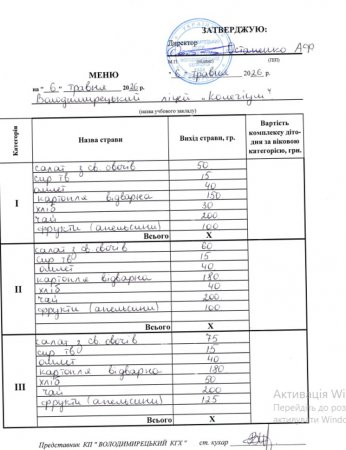 ЗАТВЕРДЖУЮ:
Директор Остапенко А.Ф
М.П. (підпис) (ПІП)
МЕНЮ
"6" травня 2026 р.
на "6" травня 2026 р.
Володимирецький ліцей "Колегіум"
(назва учбового закладу)
Категорія Назва страви Вихід страви, гр. Вартість комплексу діто-дня за віковою категорією, грн.
I
салат з св. овочів 50
сир тв 15
омлет 40
картопля відварна 150
хліб 30
чай 200
фрукти (апельсини) 100
Всього X
II
салат з св. овочів 60
сир тв 15
омлет 40
картопля відварна 180
хліб 40
чай 200
фрукти (апельсини) 100
Всього X
III
салат з св. овочів 75
сир тв 15
омлет 40
картопля відварна 180
хліб 50
чай 200
фрукти (апельсини) 125
Всього X
Активація Wi
Перейдіть до роз
активувати Windo
Представник КП " ВОЛОДИМИРЕЦЬКИЙ КГХ " ст. кухар